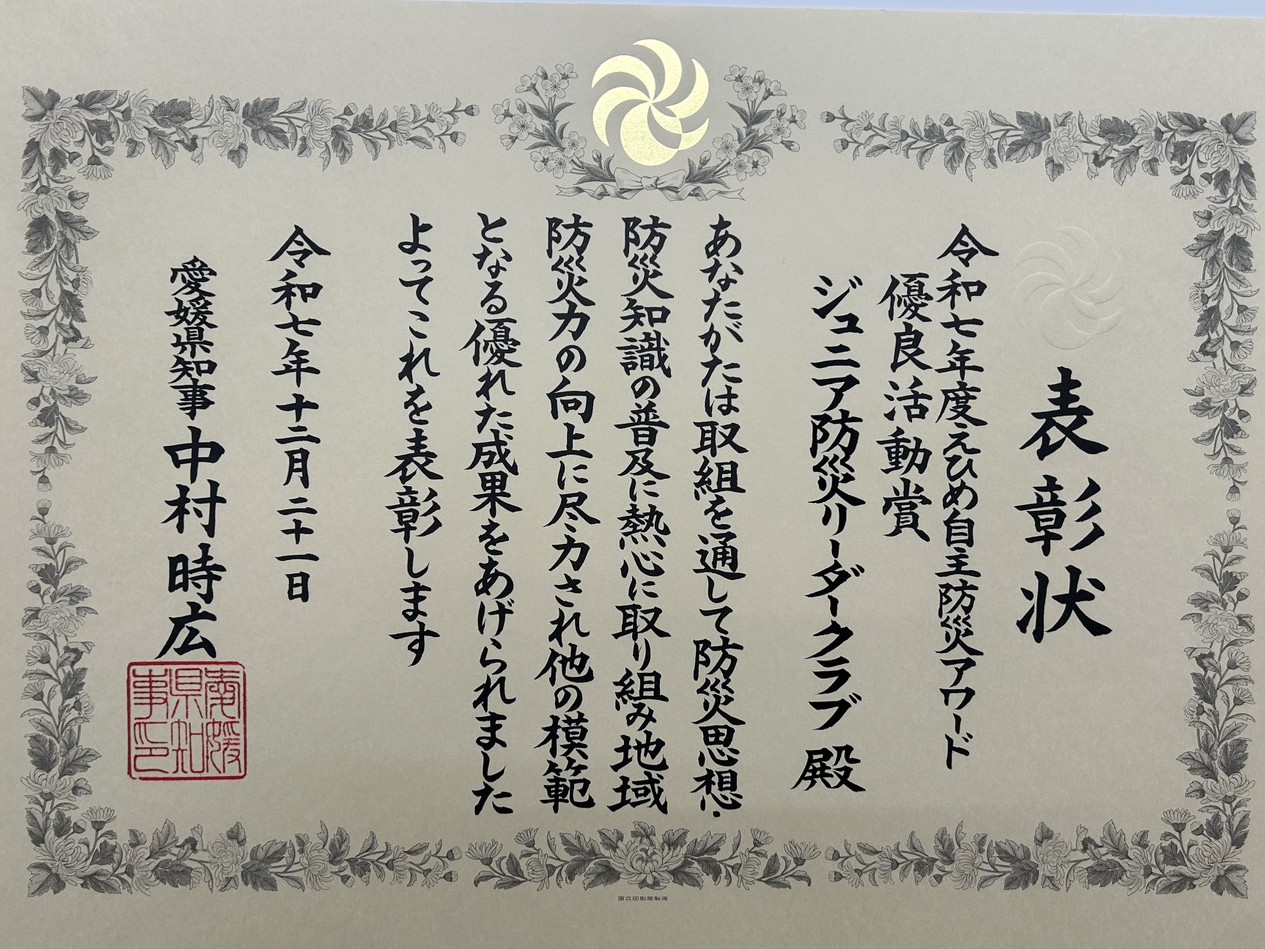 表彰状
令和七年度えひめ自主防災アワード
優良活動賞
ジュニア防災リーダークラブ 殿
あなたがたは取組を通して防災思想・
防災知識の普及に熱心に取り組み地域
防災力の向上に尽力され他の模範
となる優れた成果をあげられました
よってこれを表彰します
令和七年十二月二十一日
愛媛県知事 中村時広
愛媛
県知
事印
国立印刷局製造